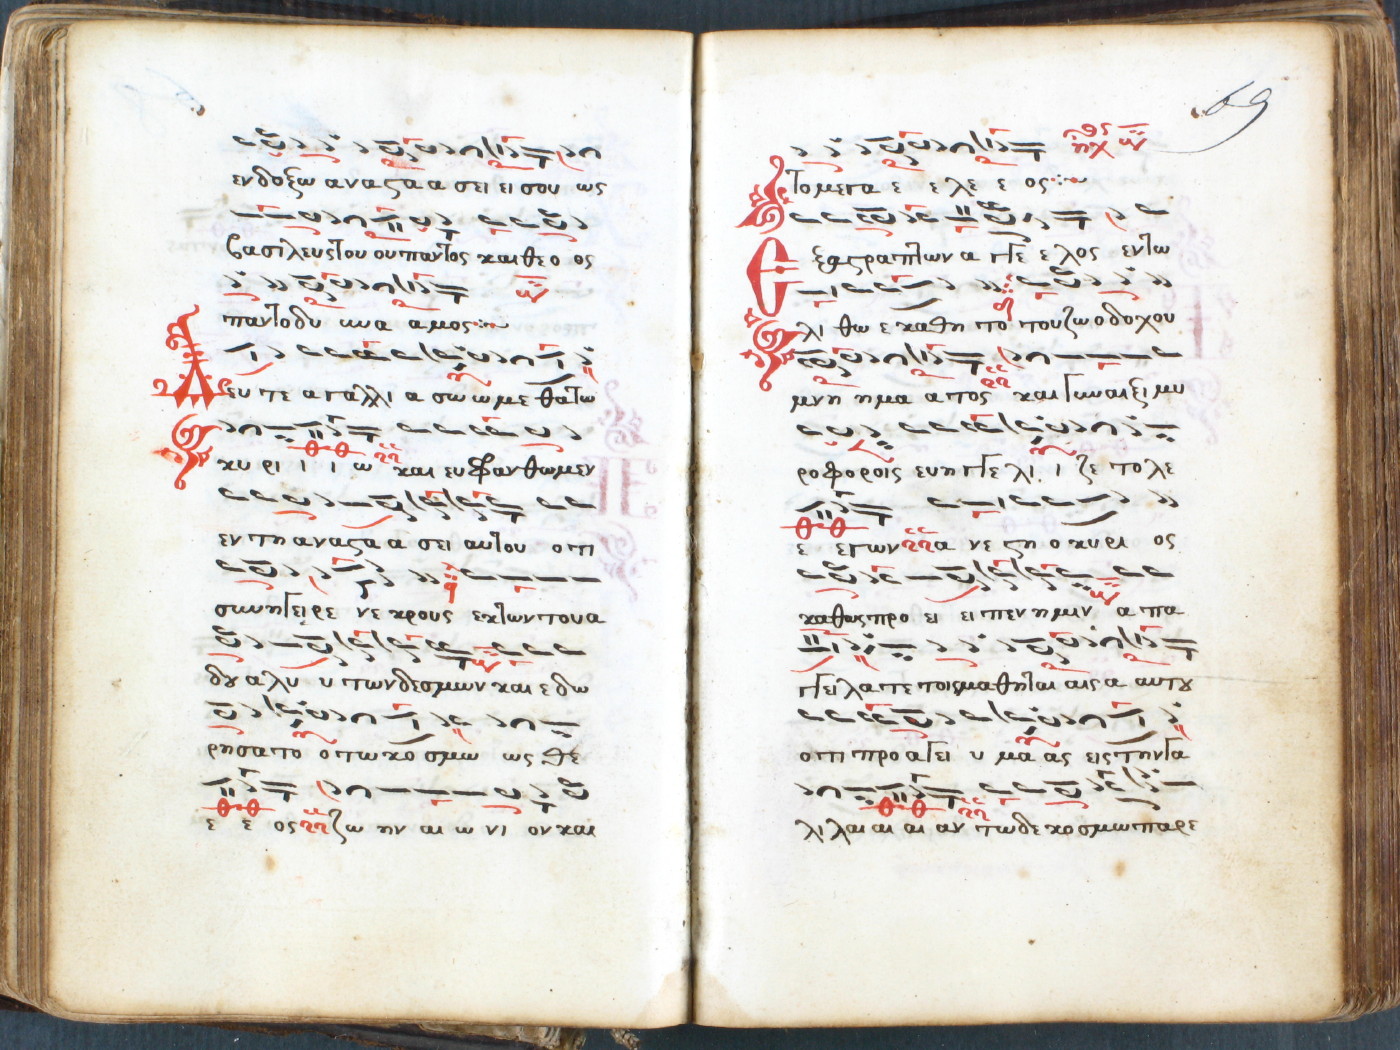 ενδοξω αναστα α σει ει σου ως
βασιλευς του ου παντος και θε ο ος
παντοδυ υν α α μος
Δευ τε α γαλλι α σω ω με θα τω
κυ ρι ι ι ω και ευφρανθωμεν
εν τη αναστα α σει αυτου ο τι
συνηγειρε νε κρους εκ των του α
δου α λυ υ των δεσμων και ε δω
ρησα το ο τω κο σμω ως θε
ε ε ος ζω ην αι ω νι ον και
69
το μεγα ε ε λε ε ος
Εξαστραπτων α γγε ε λος εν τω
λι θω ε καθη το του ζωοδοχου
μνη η μα α τος και γυναιξι μυ
ροφοροις ευη γγε λι ι ζε το λε
ε εγων α νε στη ο κυρι ος
καθως προ ει ει πεν η μιν α πα
γγειλατε τοις μαθηται αις α αυτου
οτι προ αγει υ μα ας εις την γα
λι λαι αι αι αν τω δε κοσμω παρε